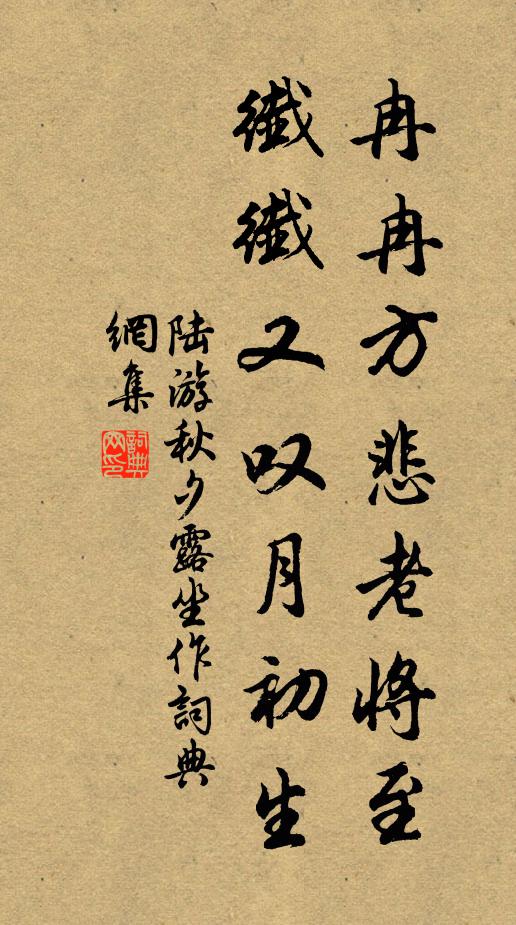 冉冉方悲老將至
纖纖又叹月初生
陆游秋夕露坐作詞典
網集
詞典网印